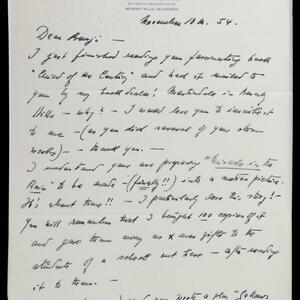 BEVERLY HILLS, CALIFORNIA
November 18th. 54.
Dear Benji -
I just finished reading your fascinating book
"Child of the Century" and had it mailed to
you by my book dealer! Martindale in Beverly
Hills - why? - I would love you to inscribe it
to me - (as you did several of your other
works) - thank you. -
I understand you're preparing "Miracle in the
Rain" to be made - (finally!!) into a motion picture.
It's about time!! - I particularly love this story! -
You will remember that I bought 100 copies of it
and gave them away as xmas gifts to the
students of a school out here - after reading
it to them. -
you wrote a play